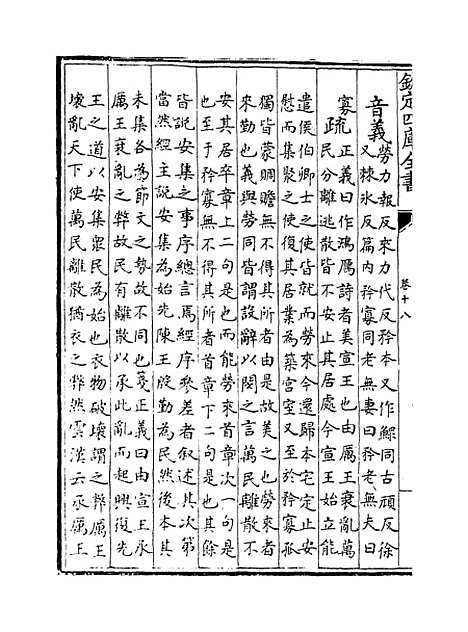 欽定四庫全書 卷十八
音義勞力報反來力代反矜本又作鰥同古頑反徐
又棘氷反篇内矜寡同老無妻曰矜老無夫曰
寡疏正義曰作鴻鴈詩者美宣王也由厲王衰亂萬
民分離逃散皆不安止其居處今宣王始立能
遣侯伯卿士之使皆就而勞來今還歸本宅定止安
慰而集聚之使復其居業為築宫室又至於矜寡孤
獨皆蒙賙贍無不得其所者由是故美之也勞來者
來勤也義與勞同皆謂設辭以閔之言萬民離散不
安其居卒章上二句是也而能勞來首章次一句是
也至于矜寡無不得其所者首章下二句是也其餘
皆說安集之事序總言焉經序參差者敘述其次第
當然經主說安集為始先陳王殷勤為民然後本其
未集各為節文之勢故不同也箋正義曰由宣王承
厲王衰亂之弊故民有離散以承此亂而起興復先
王之道以安集衆民為始也衣物破壞謂之弊厲王
壞亂天下使萬民離散猶衣之弊然雲漢云承厲王